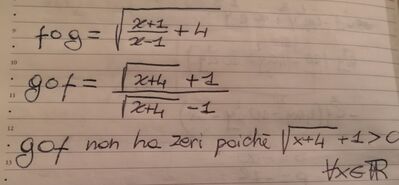 fog = √(x+1/x-1 + 4)
gof = √(x+4) + 1 / √(x+4) - 1
gof non ha zeri poichè √(x+4) + 1 > 0
∀x∈ℝ